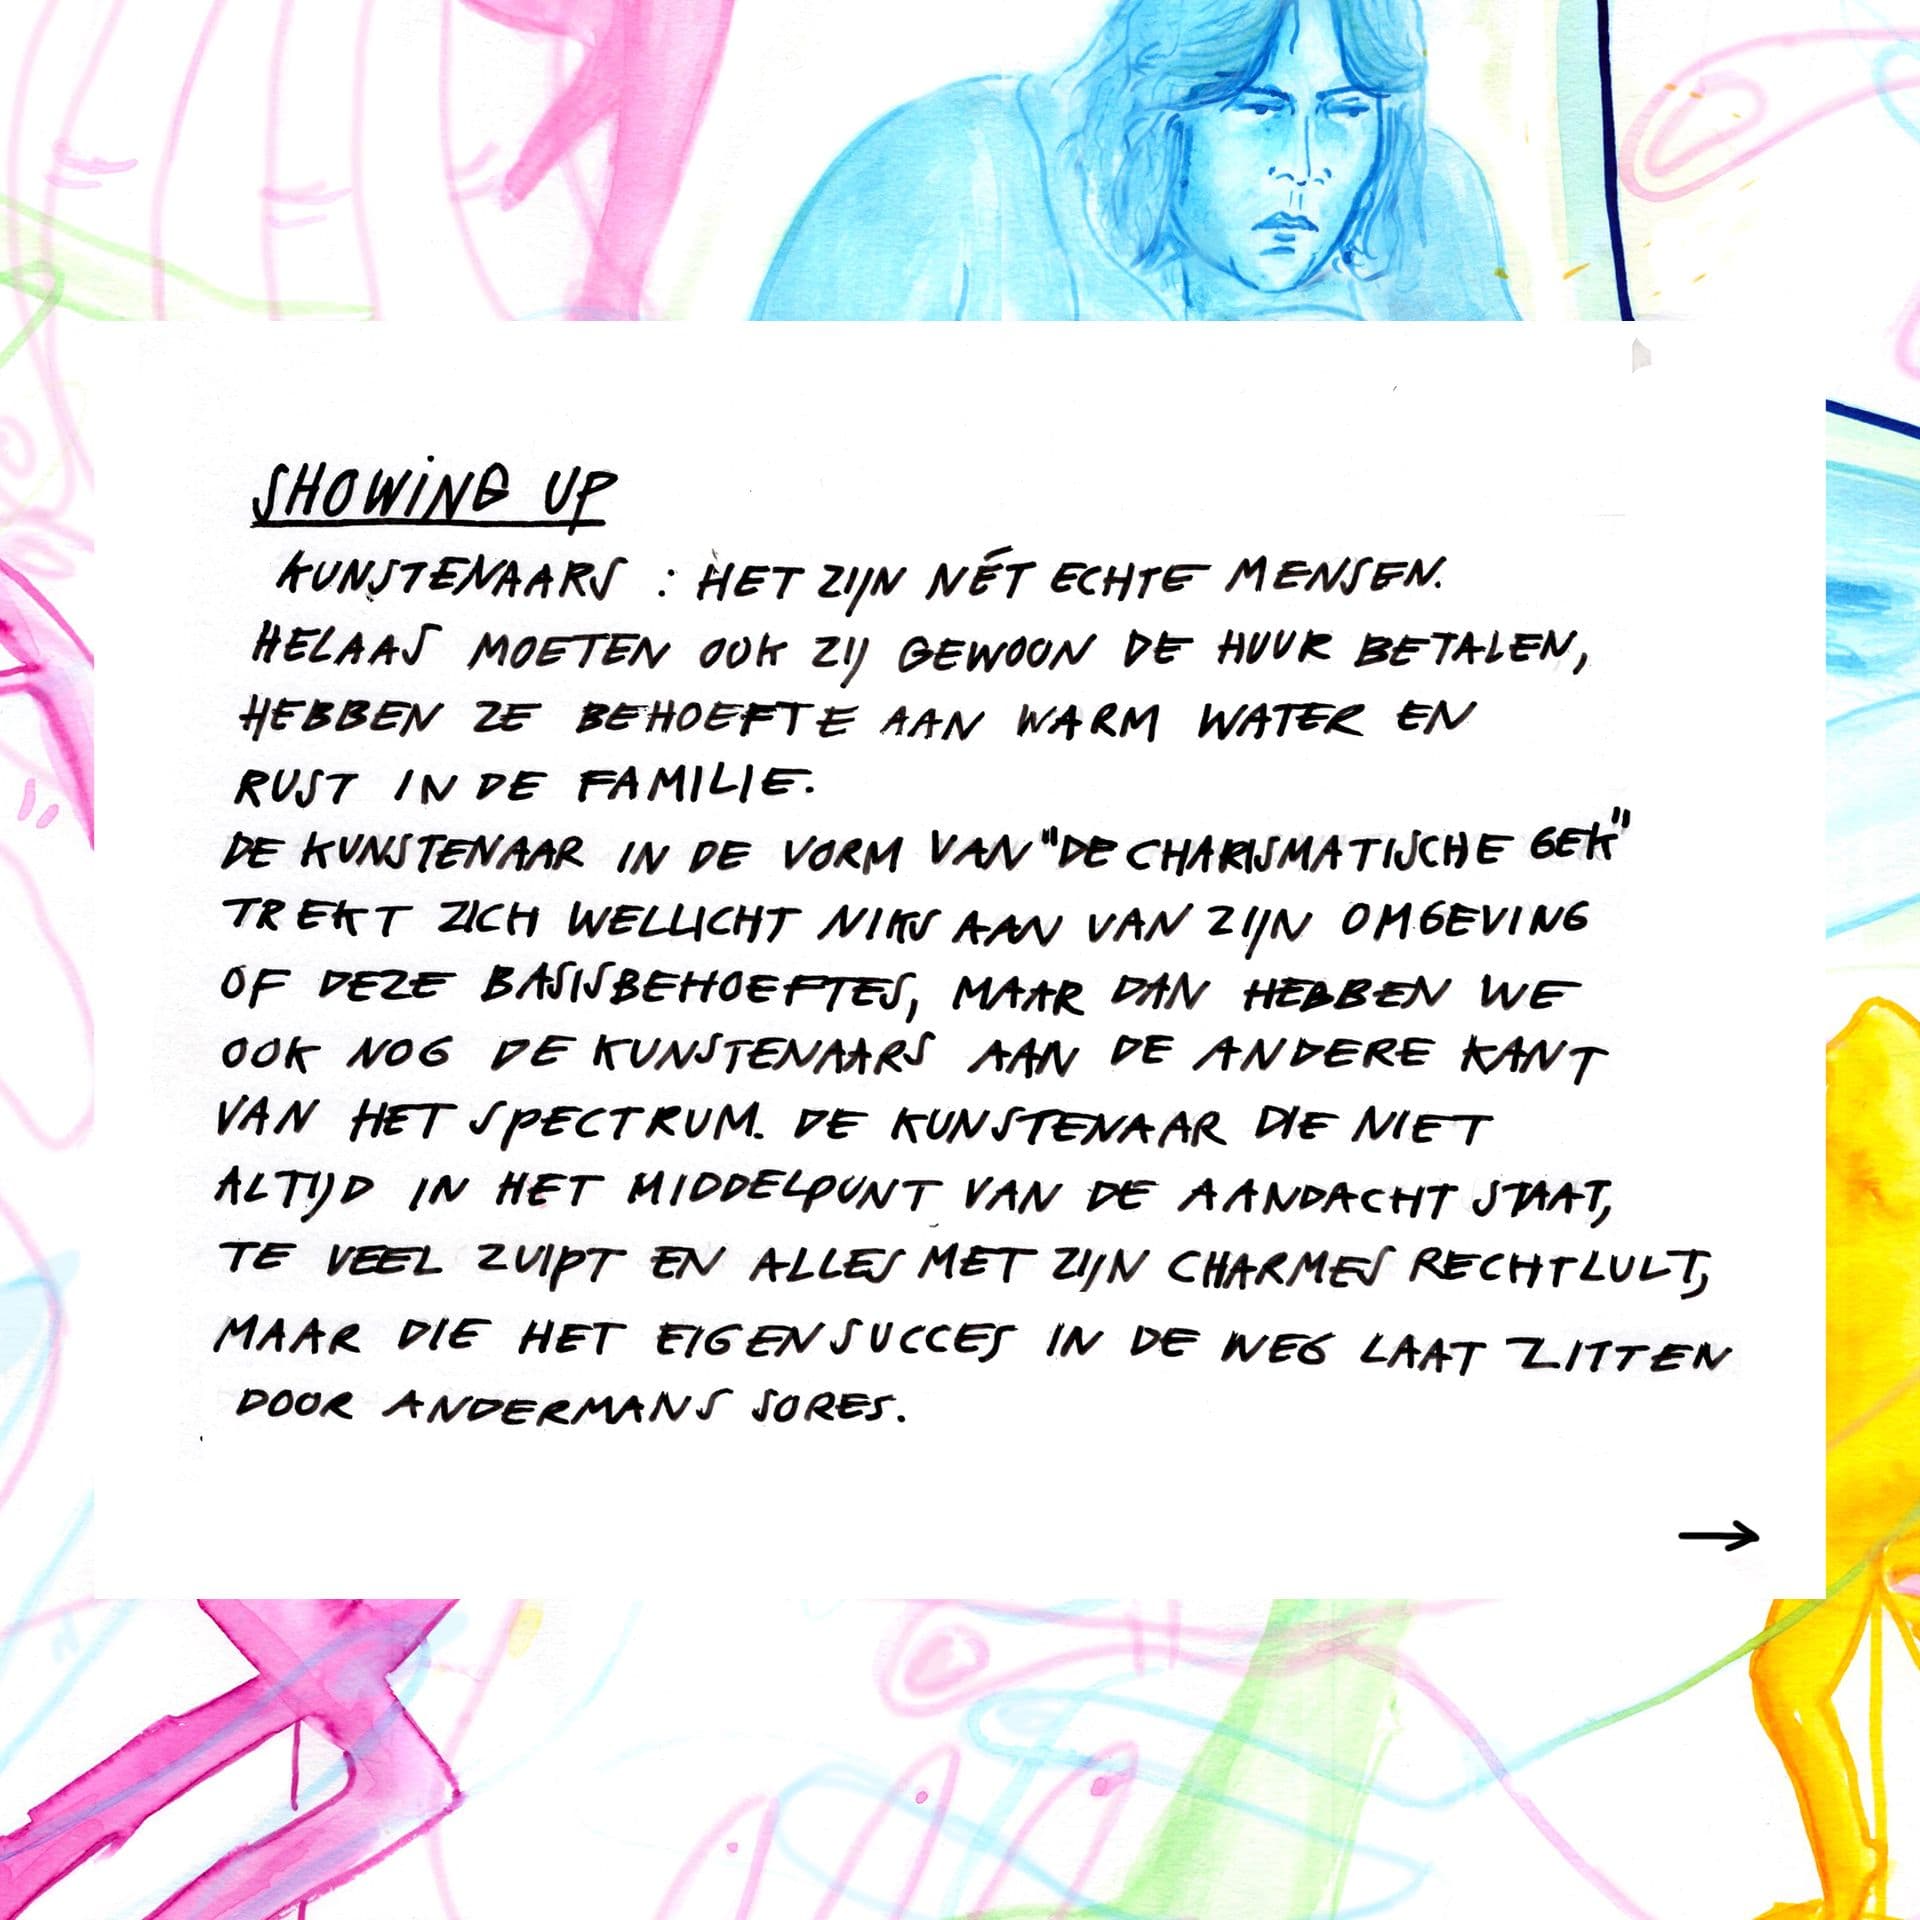 SHOWING UP
KUNSTENAARS : HET ZIJN NÉT ECHTE MENSEN.
HELAAS MOETEN OOK ZIJ GEWOON DE HUUR BETALEN,
HEBBEN ZE BEHOEFTE AAN WARM WATER EN
RUST IN DE FAMILIE.
DE KUNSTENAAR IN DE VORM VAN "DE CHARISMATISCHE GEK"
TREKT ZICH WELLICHT NIKS AAN VAN ZIJN OMGEVING
OF DEZE BASISBEHOEFTES, MAAR DAN HEBBEN WE
OOK NOG DE KUNSTENAARS AAN DE ANDERE KANT
VAN HET SPECTRUM. DE KUNSTENAAR DIE NIET
ALTIJD IN HET MIDDELPUNT VAN DE AANDACHT STAAT,
TE VEEL ZUIPT EN ALLES MET ZIJN CHARMES RECHTLULT,
MAAR DIE HET EIGEN SUCCES IN DE WEG LAAT ZITTEN
DOOR ANDERMANS SORES.